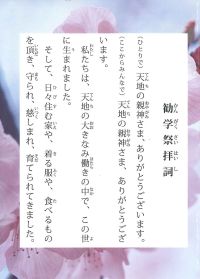 勧学祭拝詞
(ひとりで)
天地の親神さま、ありがとうございます。
(ここからみんなで)
天地の親神さま、ありがとうござ
います。
私たちは、天地の大きなみ働きの中で、この世
に生まれました。
そして、日々住む家や、着る服や、食べるもの
を頂き、守られ、慈しまれ、育てられてきました。